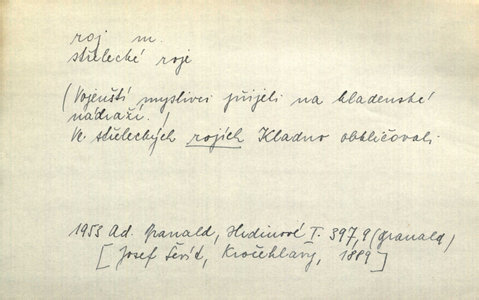 roj m.
střelecké roje
(Vojenští myslivci přijeli na kladenské
nádraží.)
Ve střeleckých rojích Kladno obkličovali
1953 Ad. Branald, Hrdinové I. 397,9 (Branald)
[Josef Šerít, Kročehlavy, 1889]